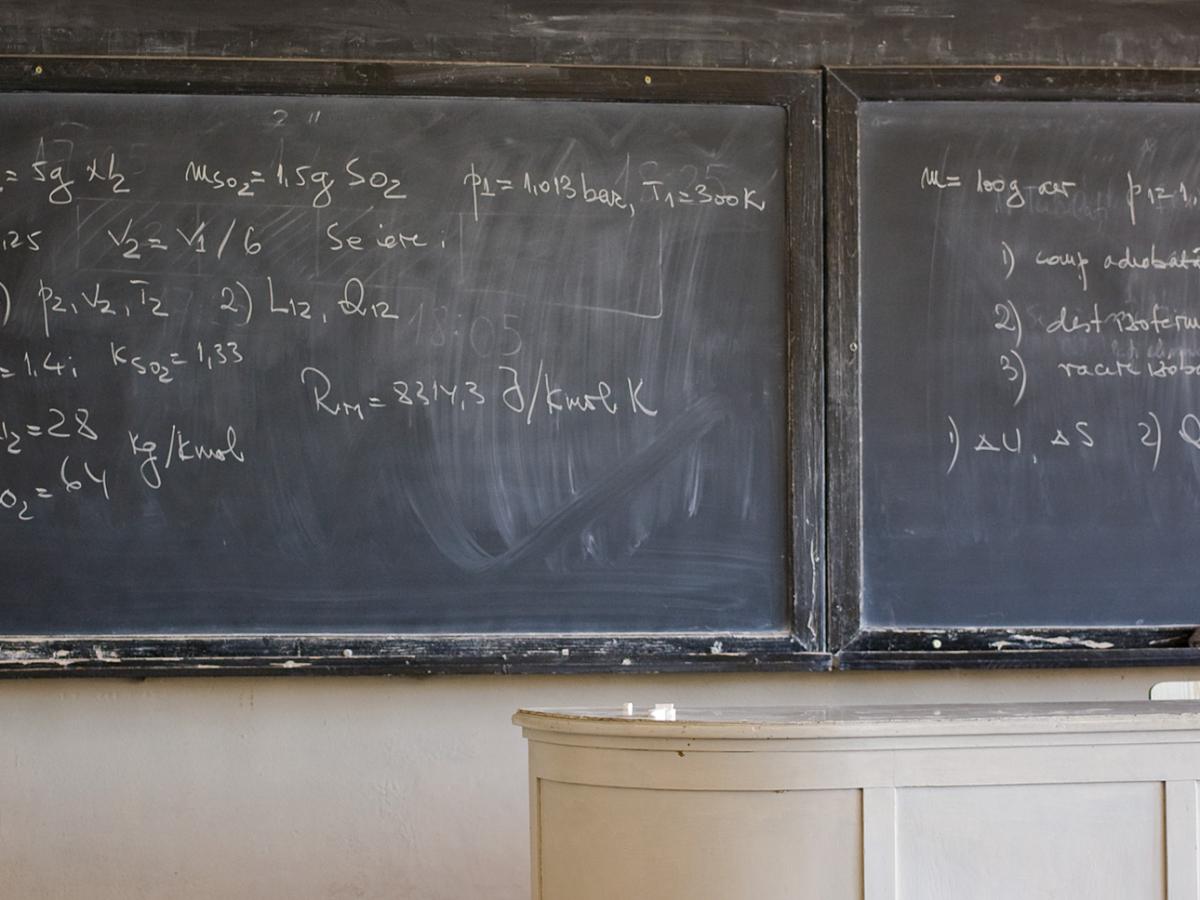 = 5g N2 mSO2 = 1,5g SO2 p1 = 1,013 bar, T1 = 300K
,25 V2 = V1 / 6 Se cere :
) p2, V2, T2 2) L12, Q12
18:05
= 1,4; KSO2 = 1,33
RM = 8314,3 J/kmol K
2 = 28
kg/kmol
O2 = 64
m = 100g aer p1 = 1,
1) comp adiabată
2) dest izoterm
3) racire izoba
1) ΔU, ΔS 2) Q